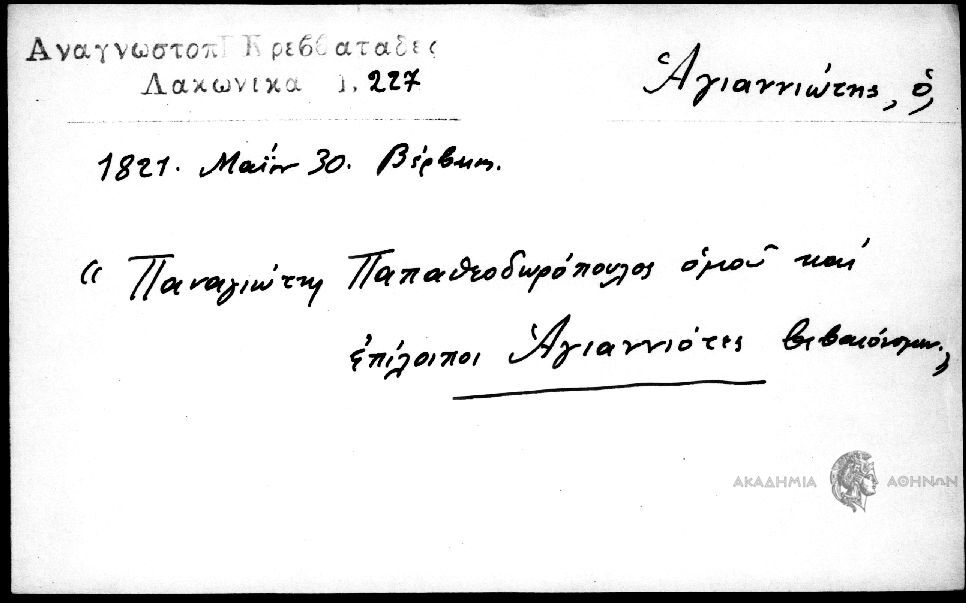 Αναγνωστοπ Γ Κρεββαταδες
Λακωνικα 1, 227
Ἀγιαννιώτης, ὁ,
1821. Μαΐου 30. Βέρβενα.
" Παναγιώτης Παπαθεοδωρόπουλος ὁμοῦ καί
ἐπίλοιποι Ἀγιαννιότες βεβαιόνομεν.,,
ΑΚΑΔΗΜΙΑ ΑΘΗΝΩΝ